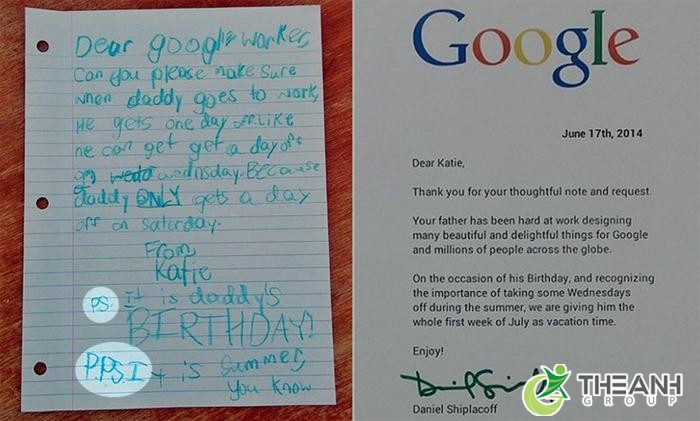 Dear google worker,
Can you please make sure
when daddy goes to work,
He gets one day off. Like
he can get get a day off
on wednsday. Because
daddy ONLY gets a day
off on saturday.
From
Katie
P.S. It is daddy's
BIRTHDAY!
P.P.S. It is summer,
you know
Google
June 17th, 2014
Dear Katie,
Thank you for your thoughtful note and request.
Your father has been hard at work designing
many beautiful and delightful things for Google
and millions of people across the globe.
On the occasion of his Birthday, and recognizing
the importance of taking some Wednesdays
off during the summer, we are giving him the
whole first week of July as vacation time.
Enjoy!
Daniel Shiplacoff
THEANH
GROUP